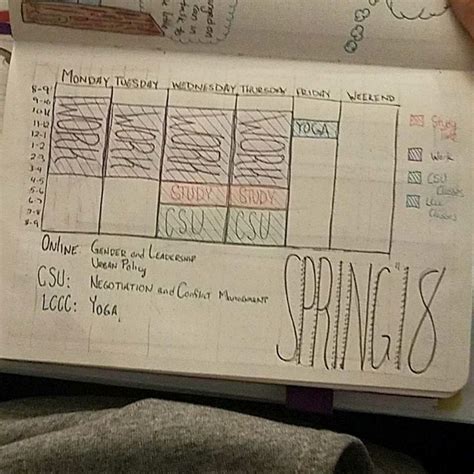 MONDAY TUESDAY WEDNESDAY THURSDAY FRIDAY WEEKEND
8-9
9-10
10-11
11-12
12-1
1-2
2-3
3-4
4-5
5-6
6-7
7-8
8-9
WORK WORK WORK WORK
YOGA
STUDY STUDY
CSU CSU
Study
Work
CSU Classes
LCCC Classes
ONLINE: GENDER and LEADERSHIP
URBAN POLICY
CSU: NEGOTIATION and CONFLICT MANAGEMENT
LCCC: YOGA
SPRING '18